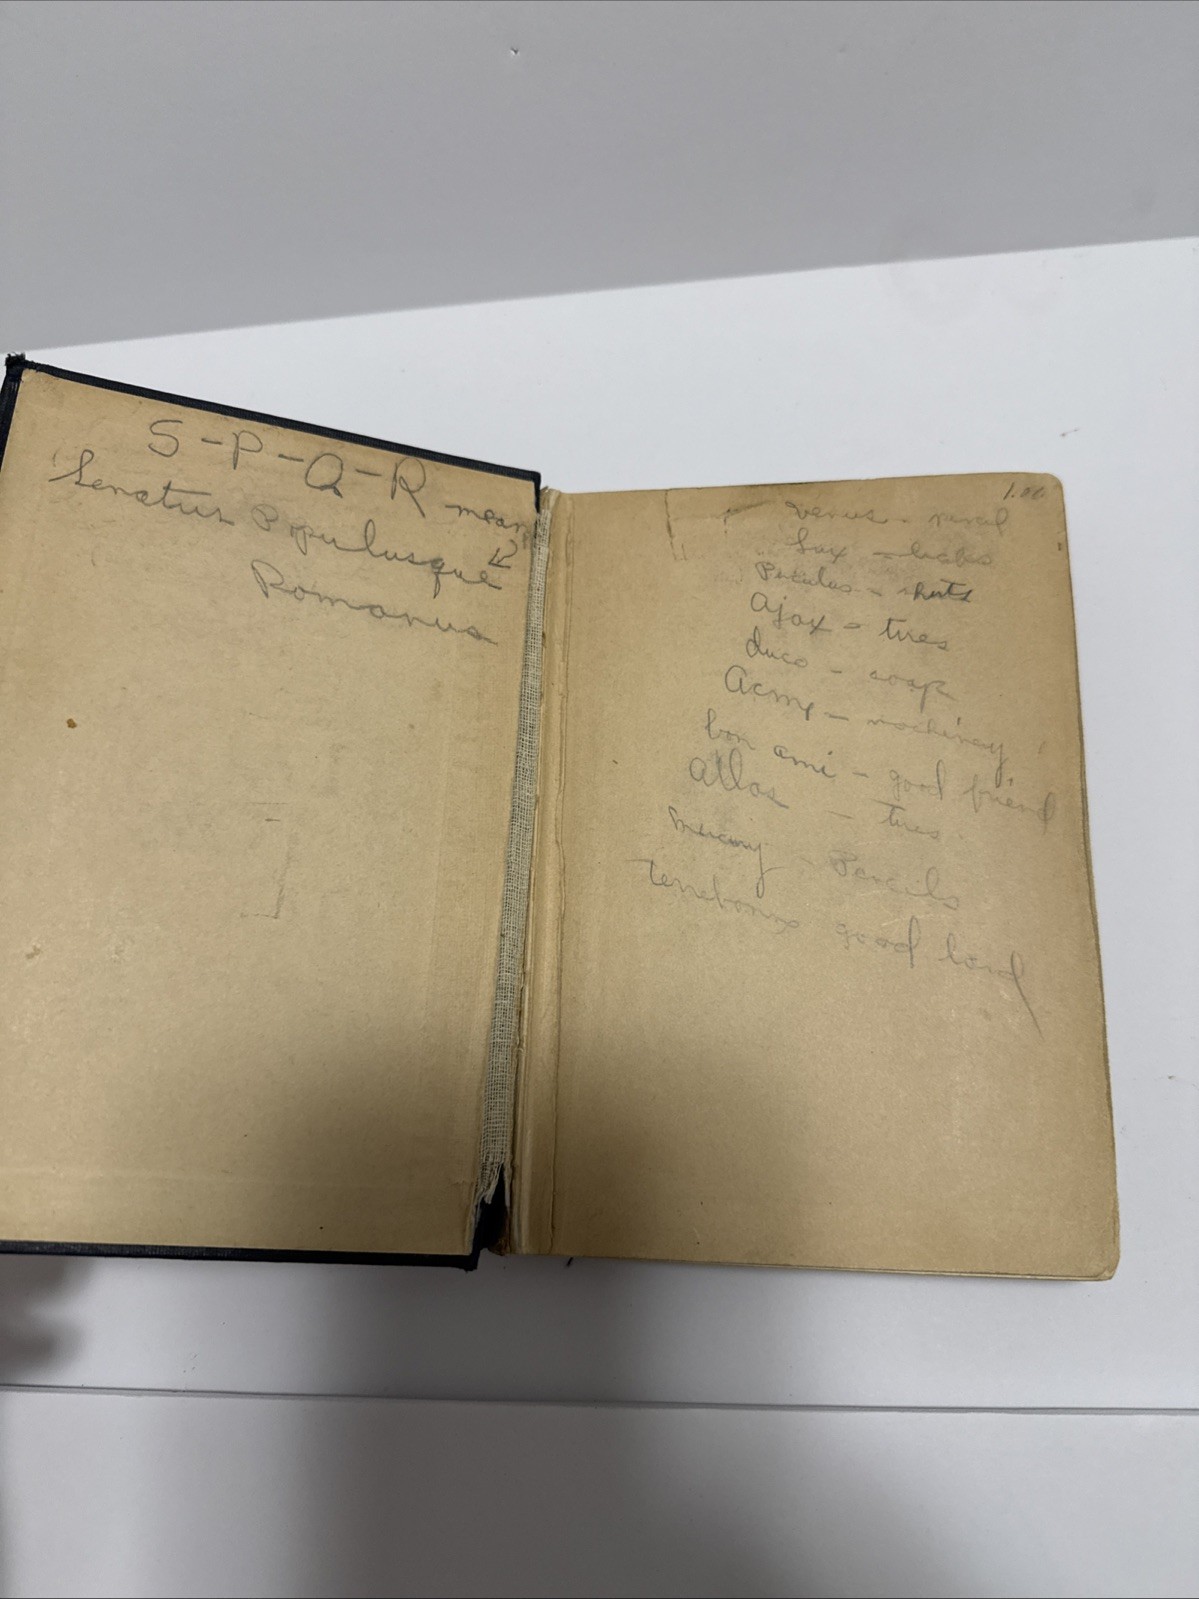 S-P-Q-R mean
Senatus Populusque
Romanus
1.00
venus - pencil
Lux -
- shirts
Ajax - tires
duco - soap
Acme - machinery
bon ami - good friend
atlas - tires
Mercury - Pencils
terrebonne good land